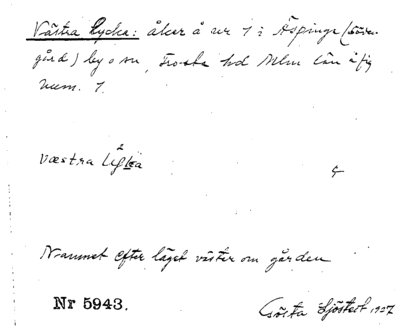 Västra Lycka: åker å nr 1 i Äspinge (Sören-
gård) by o sn, Frosta hd Mlm län å fig
num. 1.
væstra
4
Namnet efter läget väster om gården
Nr 5943.
Gösta Sjöstedt 1927